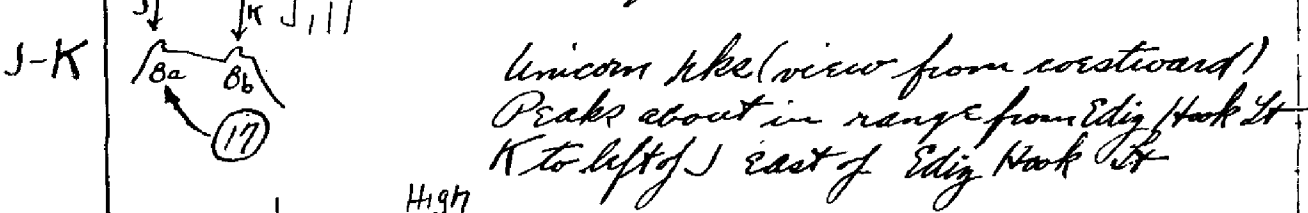 J K J, 11
J-K 8a 8b
17
Unicorn pks (view from westward)
Peaks about in range from Ediz Hook Lt
K to left of J east of Ediz Hook Lt
High